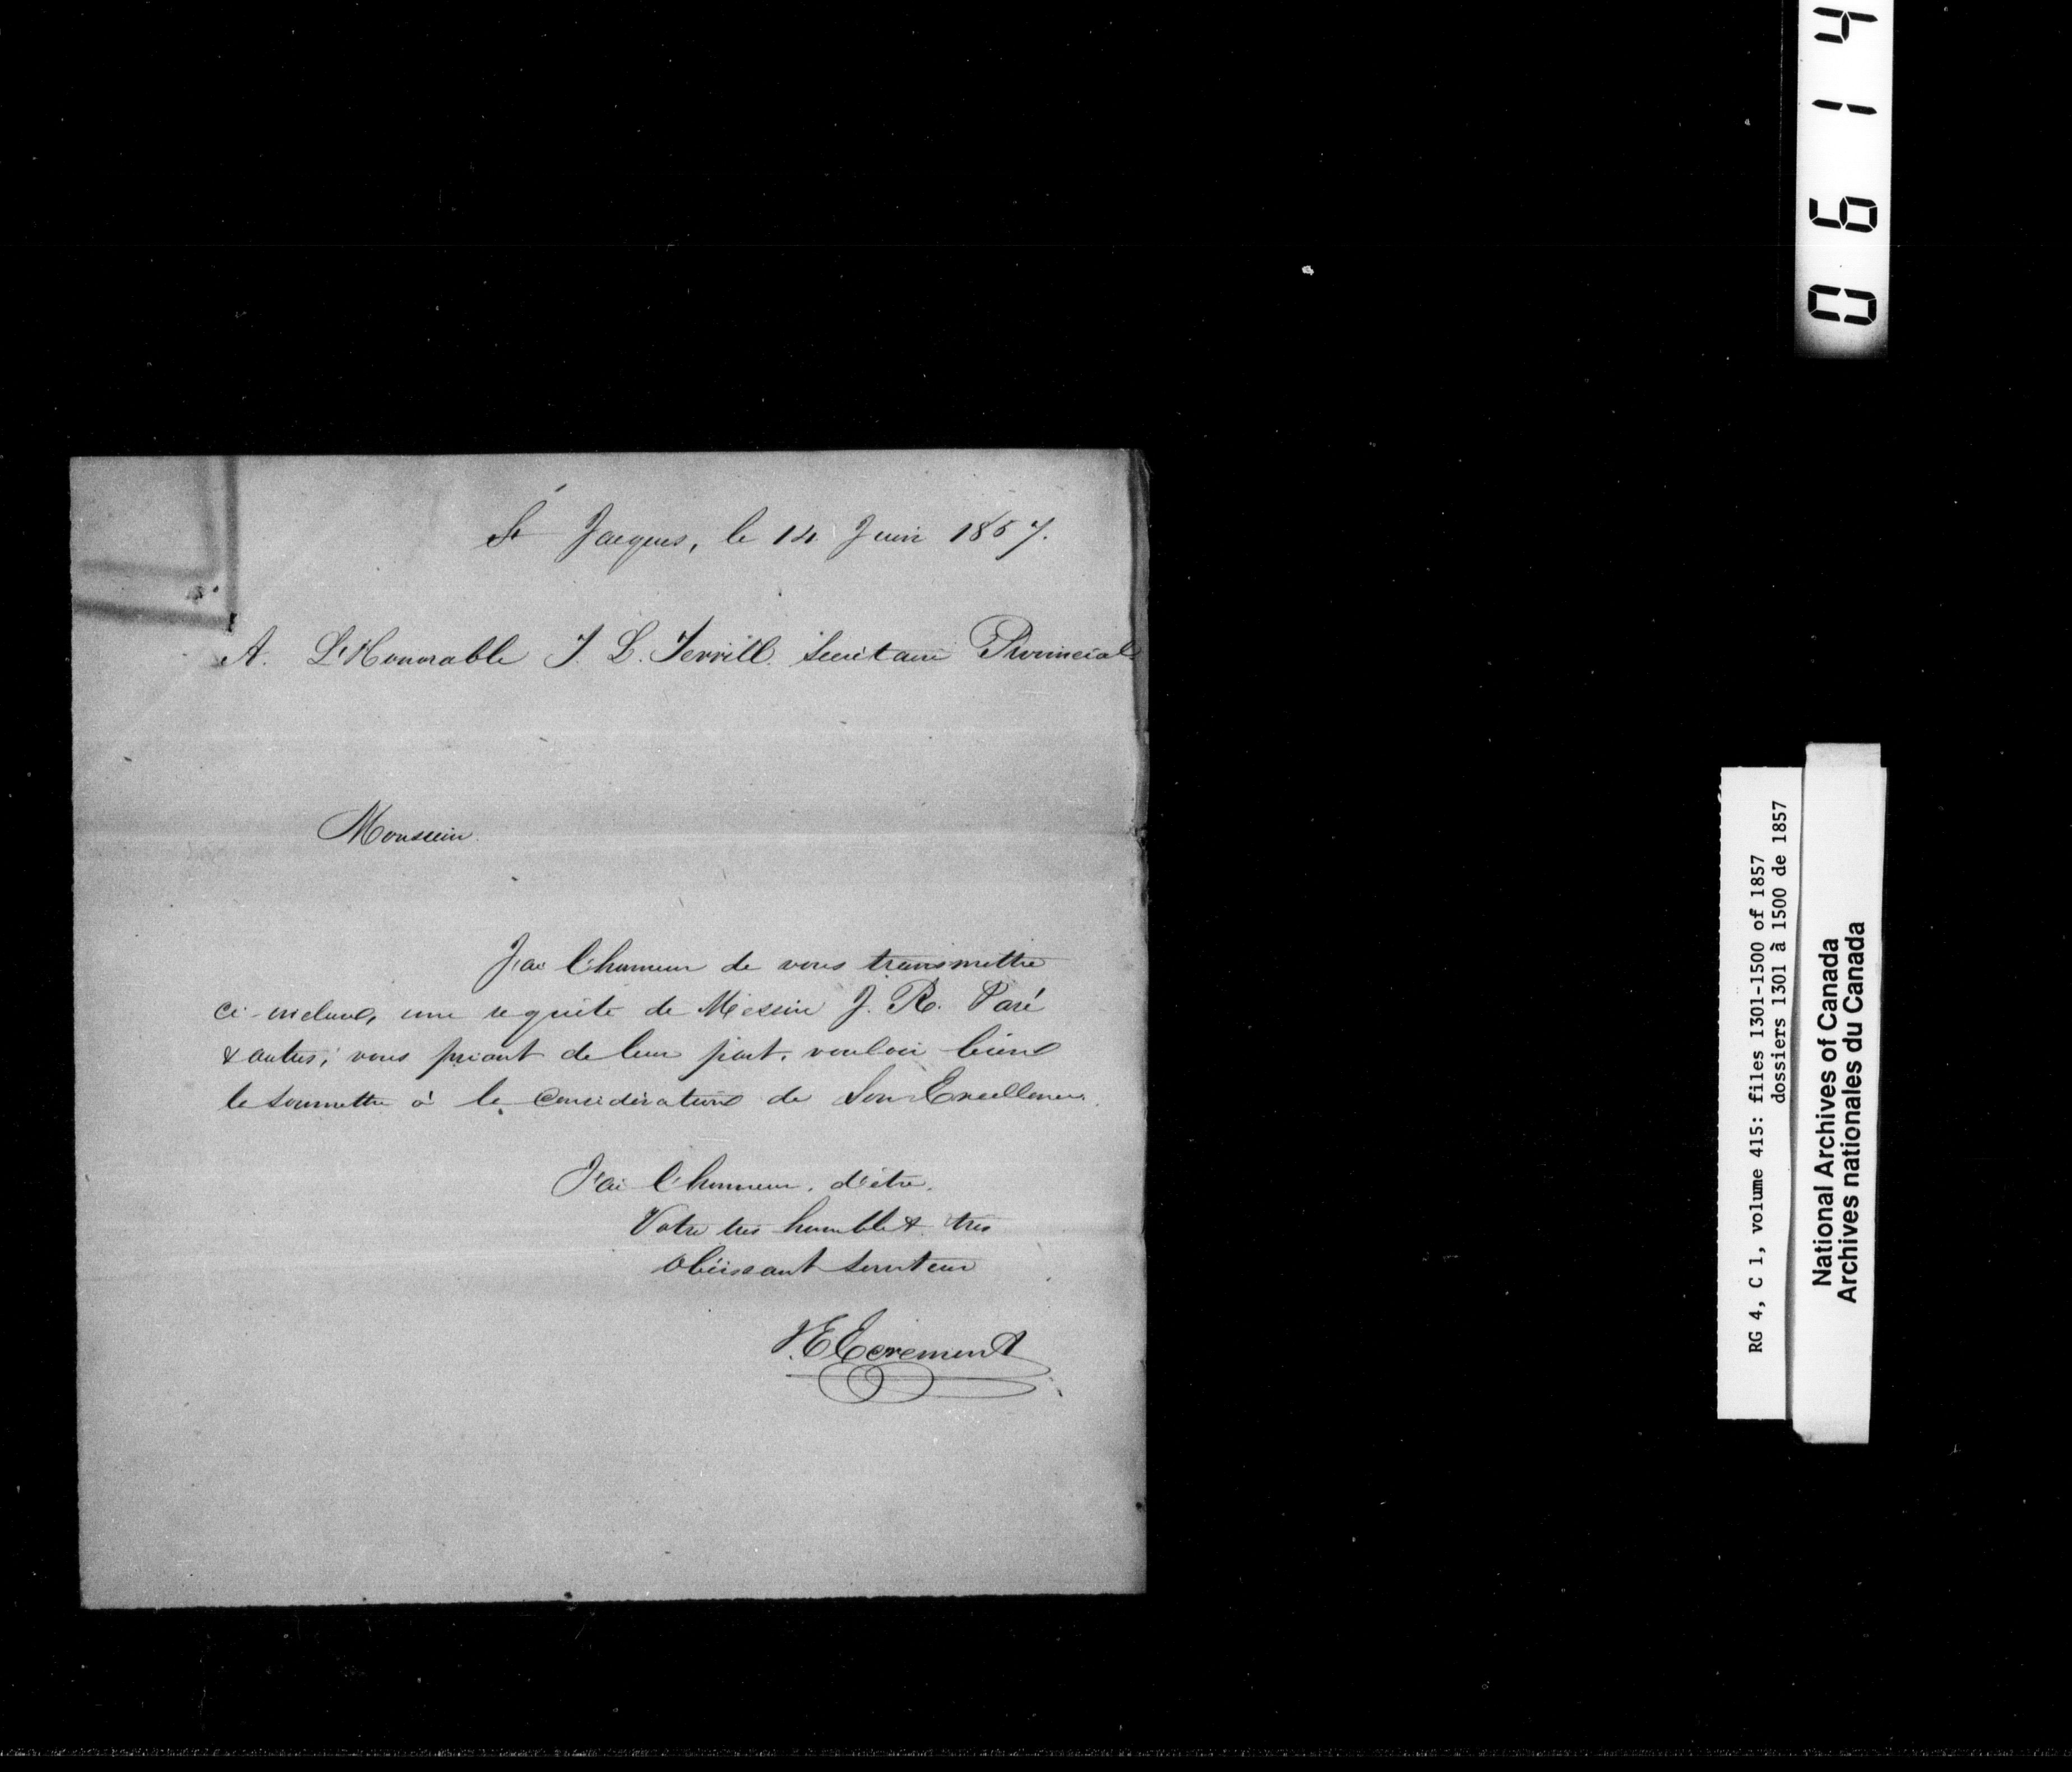 St Jacques, le 14 Juin 1857.
A. L'Honorable T. L. Terrill. Secrétaire Provincial
Monsieur.
J'ai l'honneur de vous transmettre
ci-inclus, une requête de Messire J. R. Paré
& autres, vous priant de leur part, vouloir bien
la soumettre à la Considération de Son Excellence.
J'ai l'honneur, d'être,
Votre très humble & très
obéissant serviteur
Ecrement
0614
RG 4, C 1, volume 415: files 1301-1500 of 1857
dossiers 1301 à 1500 de 1857
National Archives of Canada
Archives nationales du Canada